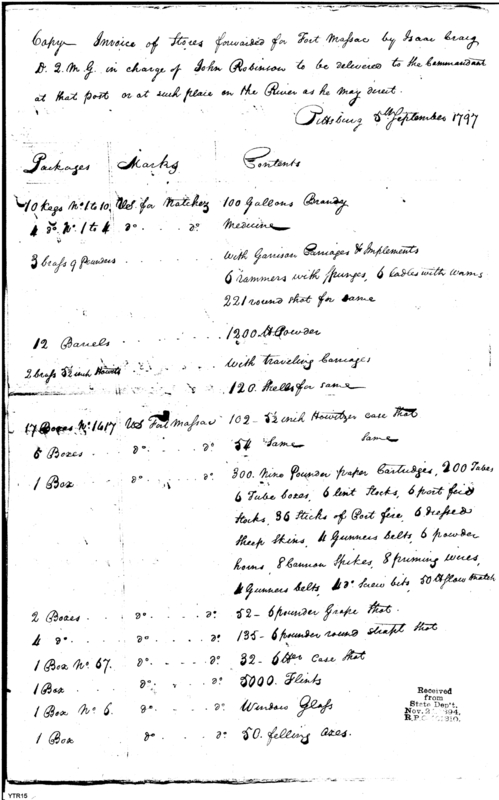 Copy Invoice of Stores forwarded for Fort Massac by Isaac Craig
D. Q. M. G. in charge of John Robinson to be delivered to the Commandant
at that post or at such place on the River as he may direct.
Pittsburg 5th September 1797
Packages Marks Contents
10 Kegs No. 1 to 10 U.S. for Natchez 100 Gallons Brandy
4 do. No. 1 to 4 do do Medicine
3 brass 9 pounders with Garrison Carriages & Implements
6 rammers with spunges, 6 ladles with worms
221 round shot for same
12 Barrels 1200 lb Powder
2 brass 5½ inch Howitz with traveling Carriages
120 Shells for same
17 Boxes No. 1 to 17 U.S Fort Massac 102 - 5½ inch Howitzer case shot
5 Boxes do do 54 same same
1 Box do do 300 Nine Pounder paper Cartridges, 200 Tubes
6 Tube boxes, 6 lint stocks, 6 port fire
stocks, 36 Sticks of Port fire, 6 dressed
sheep skins, 4 Gunners belts, 6 powder
horns, 8 Cannon Spikes, 8 priming wires,
4 Gunners belts, 4 do screw bits, 50 lb slow match
2 Boxes do do 52 - 6 pounder Grape shot.
4 do. do do 135 - 6 pounder round strapt shot
1 Box No. 67. do do 32 - 6 lber case shot
1 Box do do 5000. Flints
1 Box No. 6. do do Window Glass
1 Box do do 50. felling axes.
Received
from
State Dep't.
Nov. 2 1894.
YTR15